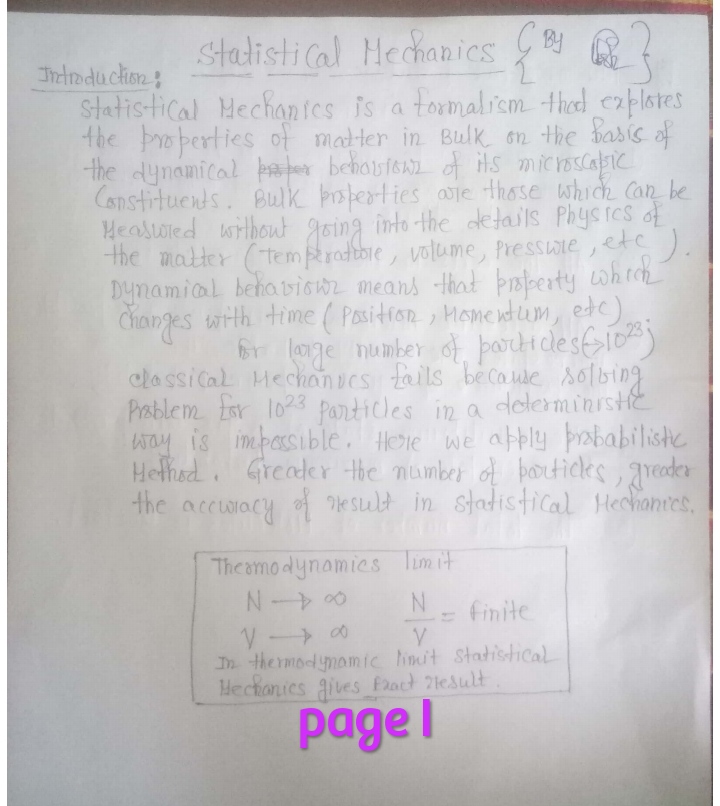 Statistical Mechanics { By }
Introduction:
Statistical Mechanics is a formalism that explores
the properties of matter in Bulk on the basis of
the dynamical behaviour of its microscopic
Constituents. Bulk properties are those which can be
Measured without going into the details Physics of
the matter (Temperature, volume, Pressure, etc).
Dynamical behaviour means that property which
Changes with time (Position, Momentum, etc)
for large number of particles (→10²³)
Classical Mechanics fails because solving
Problem for 10²³ Particles in a deterministic
way is impossible. Here we apply probabilistic
Method. Greater the number of particles, greater
the accuracy of result in Statistical Mechanics.
Thermodynamics limit
N → ∞ N/V = finite
V → ∞
In thermodynamic limit Statistical
Mechanics gives Exact result.
page 1